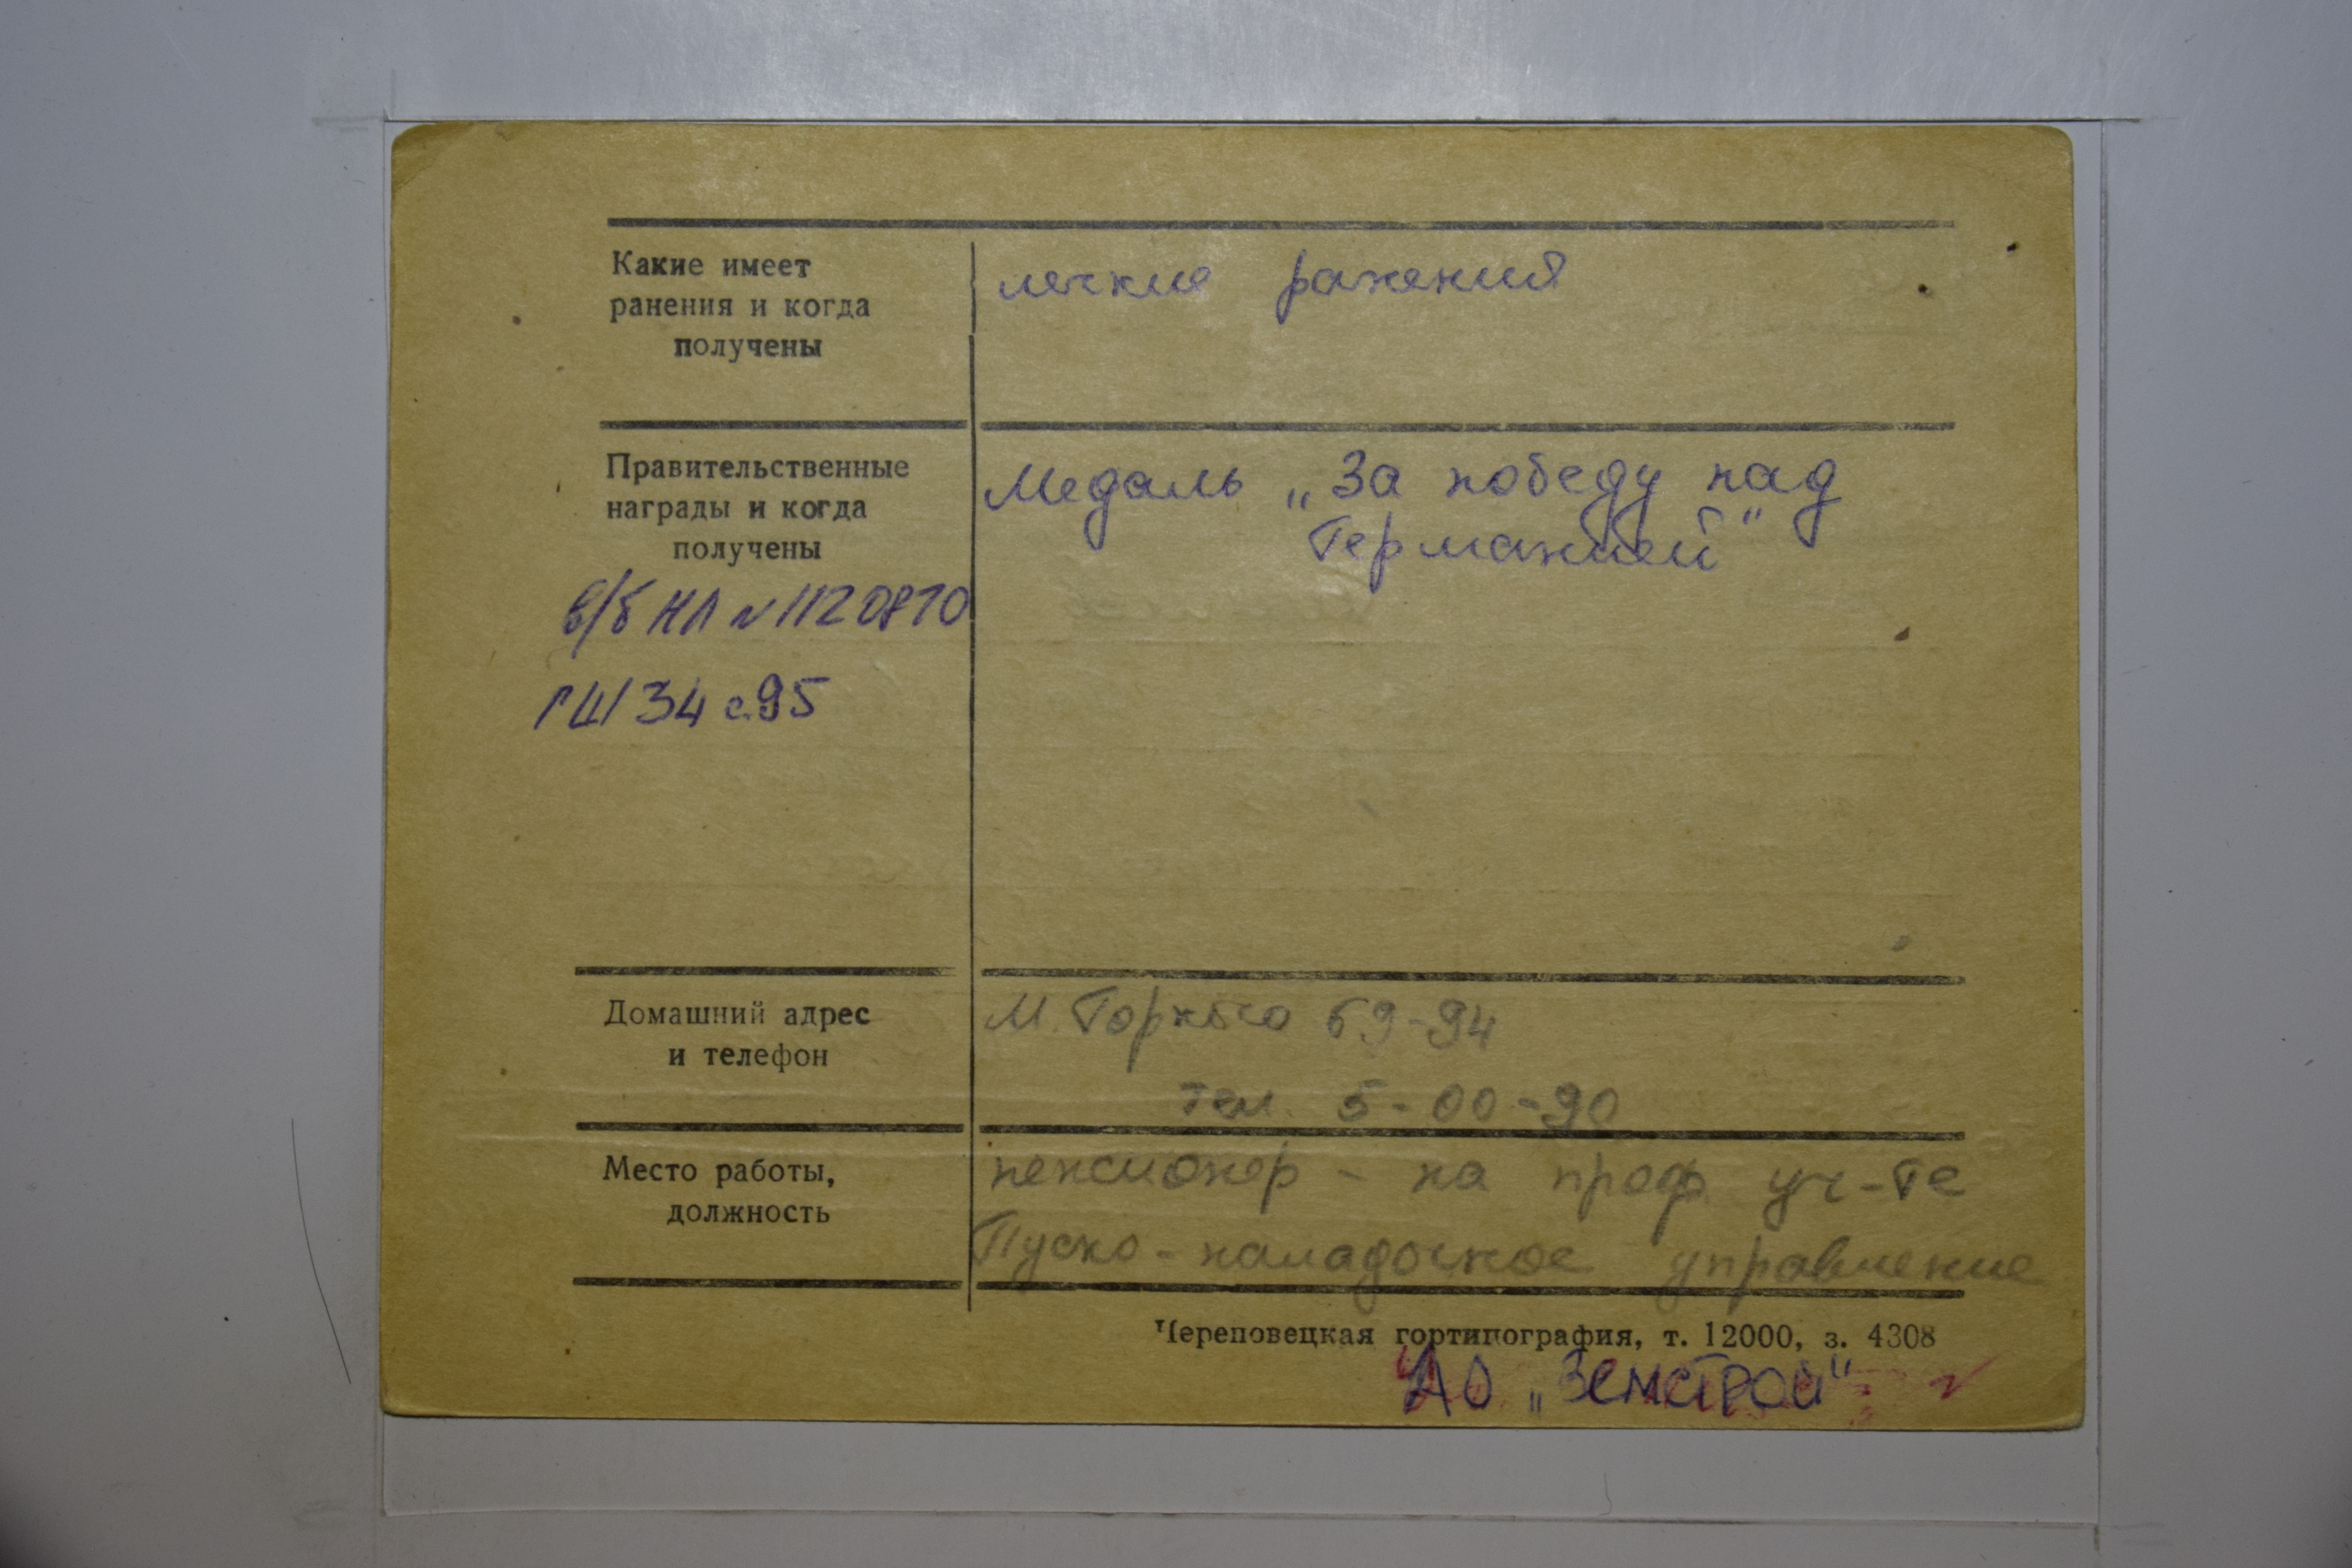 Какие имеет
ранения и когда
получены
легкие ранения
Правительственные
награды и когда
получены
Медаль „За победу над
Германией"
в/б НЛ № 1120870
ГШ 34 с.95
Домашний адрес
и телефон
М. Горького 69-94
тел. 5-00-90
Место работы,
должность
пенсионер - на проф. уч-те
Пуско-наладочное управление
Череповецкая гортипография, т. 12000, з. 4308
АО „Земстрой"